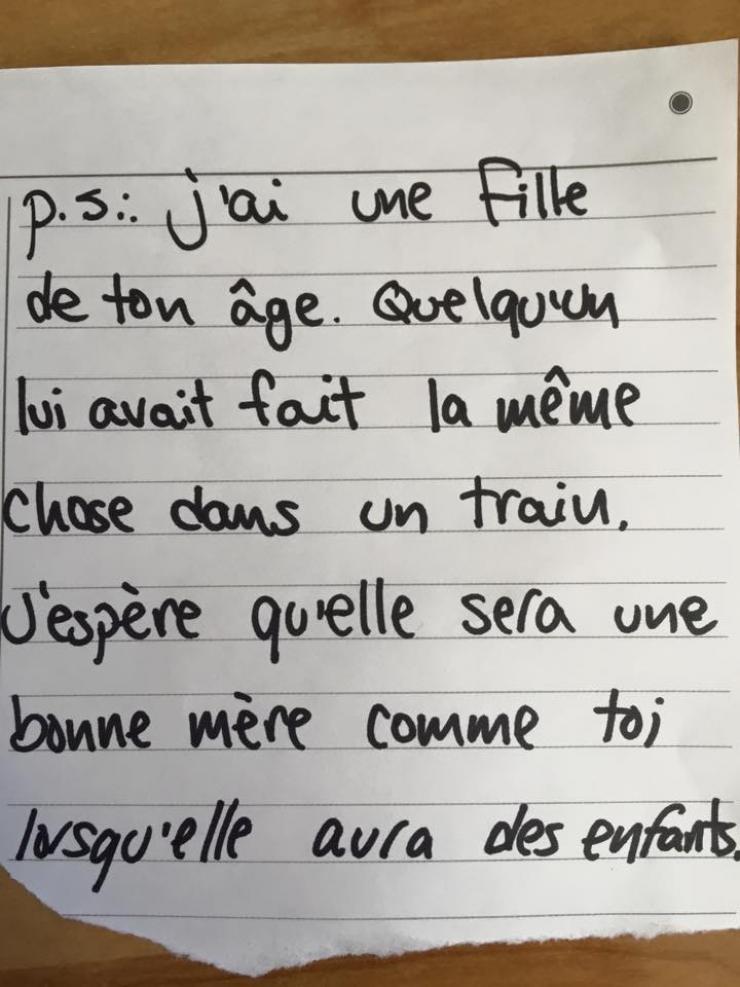 p.s.: j'ai une fille
de ton âge. Quelqu'un
lui avait fait la même
chose dans un train.
J'espère qu'elle sera une
bonne mère comme toi
lorsqu'elle aura des enfants.